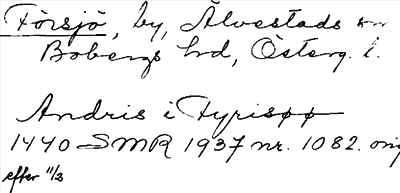 Försjö, by, Älvestads sn
Bobergs hd, Österg. l.
Andris i Fyrisøø
1440 SMR 1937 nr. 1082. orig
efter 11/3